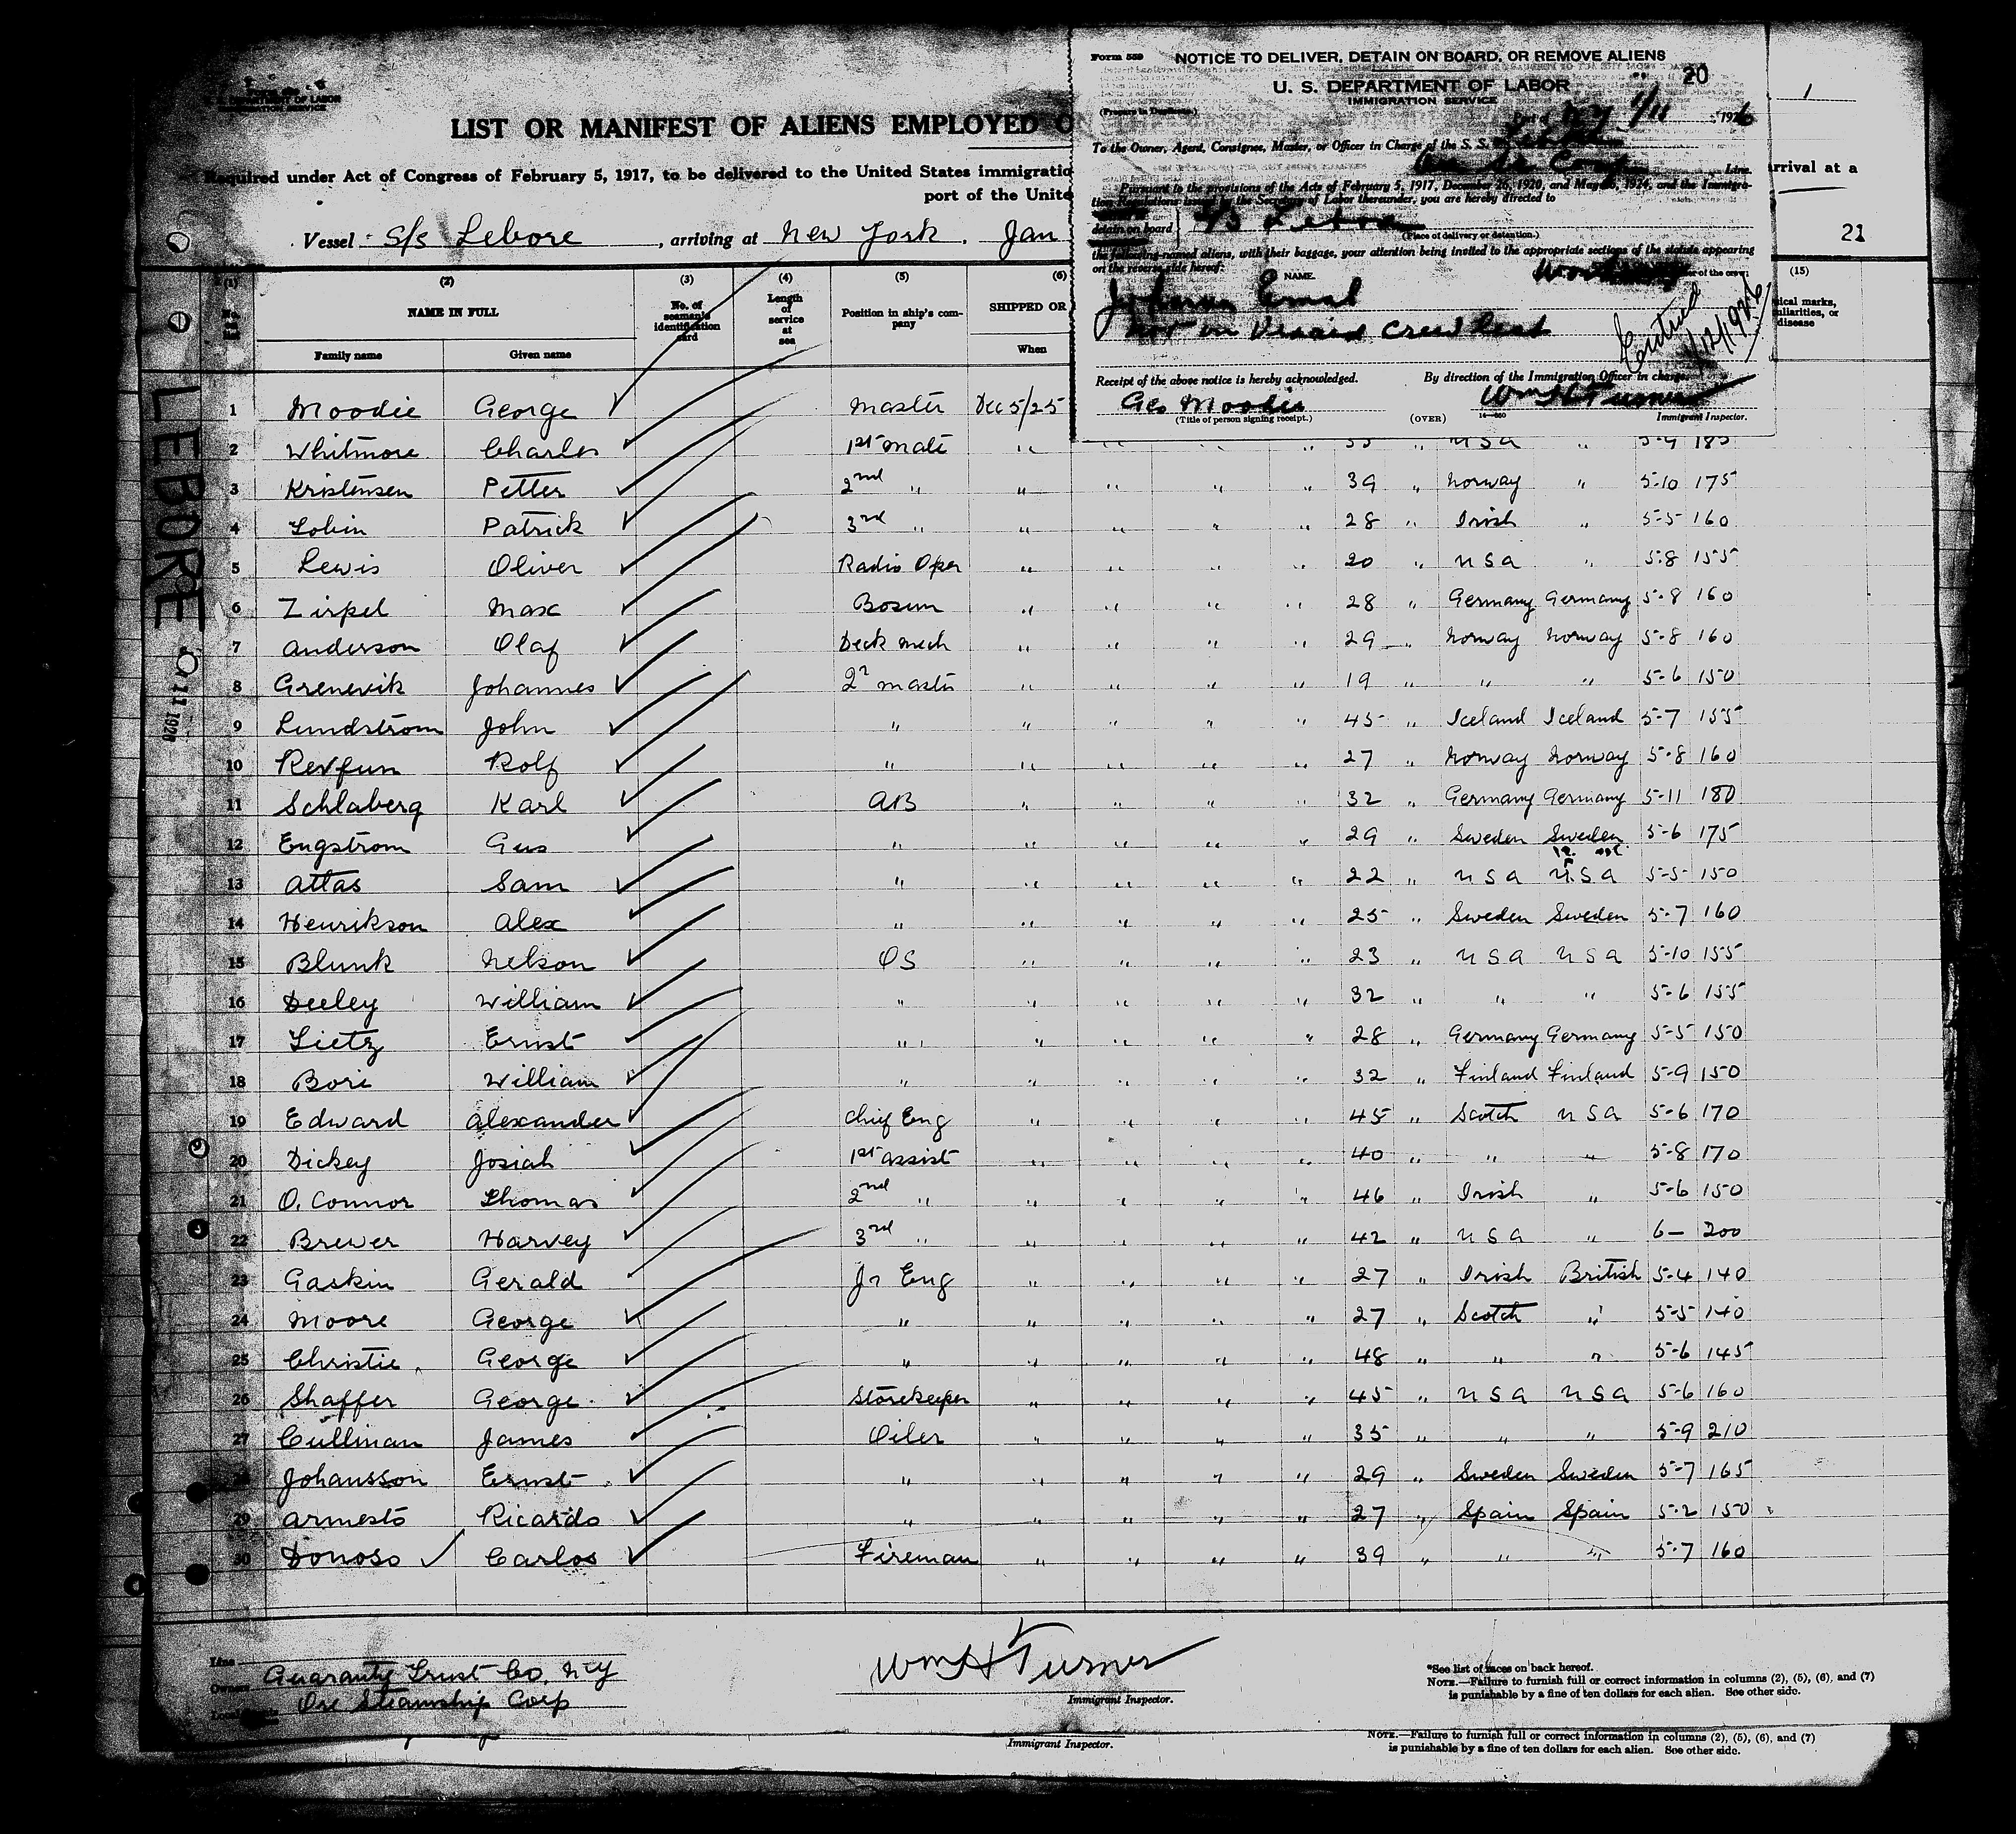 Form 559 NOTICE TO DELIVER, DETAIN ON BOARD, OR REMOVE ALIENS
20
U. S. DEPARTMENT OF LABOR
IMMIGRATION SERVICE
(Prepare in Duplicate.)
Port of NY 1/11, 1926
To the Owner, Agent, Consignee, Master, or Officer in Charge of the S. S.
Line.
Pursuant to the provisions of the Acts of February 5, 1917, December 26, 1920, and May 26, 1924, and the Immigra-
tion Regulations issued by the Secretary of Labor thereunder, you are hereby directed to
detain on board
(Place of delivery or detention.)
the following-named aliens, with their baggage, your attention being invited to the appropriate sections of the statute appearing
on the reverse side hereof:
NAME.
not on Visaed Crew List
Receipt of the above notice is hereby acknowledged. By direction of the Immigration Officer in charge.
Geo Moodie Wm H Turner
(Title of person signing receipt.) (OVER) Immigrant Inspector.
DEPARTMENT OF LABOR
LIST OR MANIFEST OF ALIENS EMPLOYED O
1
Required under Act of Congress of February 5, 1917, to be delivered to the United States immigratio
rrival at a
port of the Unite
Vessel S/S Lebore, arriving at New York. Jan
21
(1) (2) (3) (4) (5) (6) (15)
NAME IN FULL No. of seaman's identification card Length of service at sea Position in ship's company SHIPPED OR
Family name Given name When
LEBORE
1 Moodie George Master Dec 5/25
2 Whitmore Charles 1st mate " " " " 35 " USA " 5-9 185
3 Kristensen Petter 2nd " " " " " 39 " Norway " 5-10 175
4 Tobin Patrick 3rd " " " " " 28 " Irish " 5-5 160
5 Lewis Oliver Radio Oper " " " " 20 " USA " 5-8 155
6 Zirpel Max Bosun " " " " 28 " Germany Germany 5-8 160
7 Anderson Olaf Deck Mech " " " " 29 " Norway Norway 5-8 160
8 Grenevik Johannes " " " " 19 " " " 5-6 150
9 Lundstrom John " " " " " 45 " Iceland Iceland 5-7 155
10 Rolf " " " " " 27 " Norway Norway 5-8 160
11 Schlaberg Karl AB " " " " 32 " Germany Germany 5-11 180
12 Engstrom Gus " " " " " 29 " Sweden Sweden 5-6 175
13 Attas Sam " " " " " 22 " USA USA 5-5 150
14 Henrikson Alex " " " " " 25 " Sweden Sweden 5-7 160
15 Blunk Nelson OS " " " " 23 " USA USA 5-10 155
16 Deeley William " " " " " 32 " " " 5-6 155
17 Tietz Ernst " " " " " 28 " Germany Germany 5-5 150
18 Bori William " " " " " 32 " Finland Finland 5-9 150
19 Edward Alexander Chief Eng " " " " 45 " Scotch USA 5-6 170
20 Dickey Josiah 1st assist " " " " 40 " " " 5-8 170
21 O. Connor Thomas 2nd " " " " " 46 " Irish " 5-6 150
22 Brewer Harvey 3rd " " " " " 42 " USA " 6- 200
23 Gaskin Gerald Jr Eng " " " " 27 " Irish British 5-4 140
24 Moore George " " " " " 27 " Scotch " 5-5 140
25 Christie George " " " " " 48 " " " 5-6 145
26 Shaffer George Storekeeper " " " " 45 " USA USA 5-6 160
27 Cullinan James Oiler " " " " 35 " " " 5-9 210
28 Johansson Ernst " " " " " 29 " Sweden Sweden 5-7 165
29 Armesto Ricardo " " " " " 27 " Spain Spain 5-2 150
30 Donoso Carlos Fireman " " " " 39 " " " 5-7 160
Line
Owners Guaranty Trust Co, NY
Ore Steamship Corp
Wm H Turner
Immigrant Inspector.
*See list of races on back hereof.
NOTE.—Failure to furnish full or correct information in columns (2), (5), (6), and (7)
is punishable by a fine of ten dollars for each alien. See other side.
Immigrant Inspector.
NOTE.—Failure to furnish full or correct information in columns (2), (5), (6), and (7)
is punishable by a fine of ten dollars for each alien. See other side.